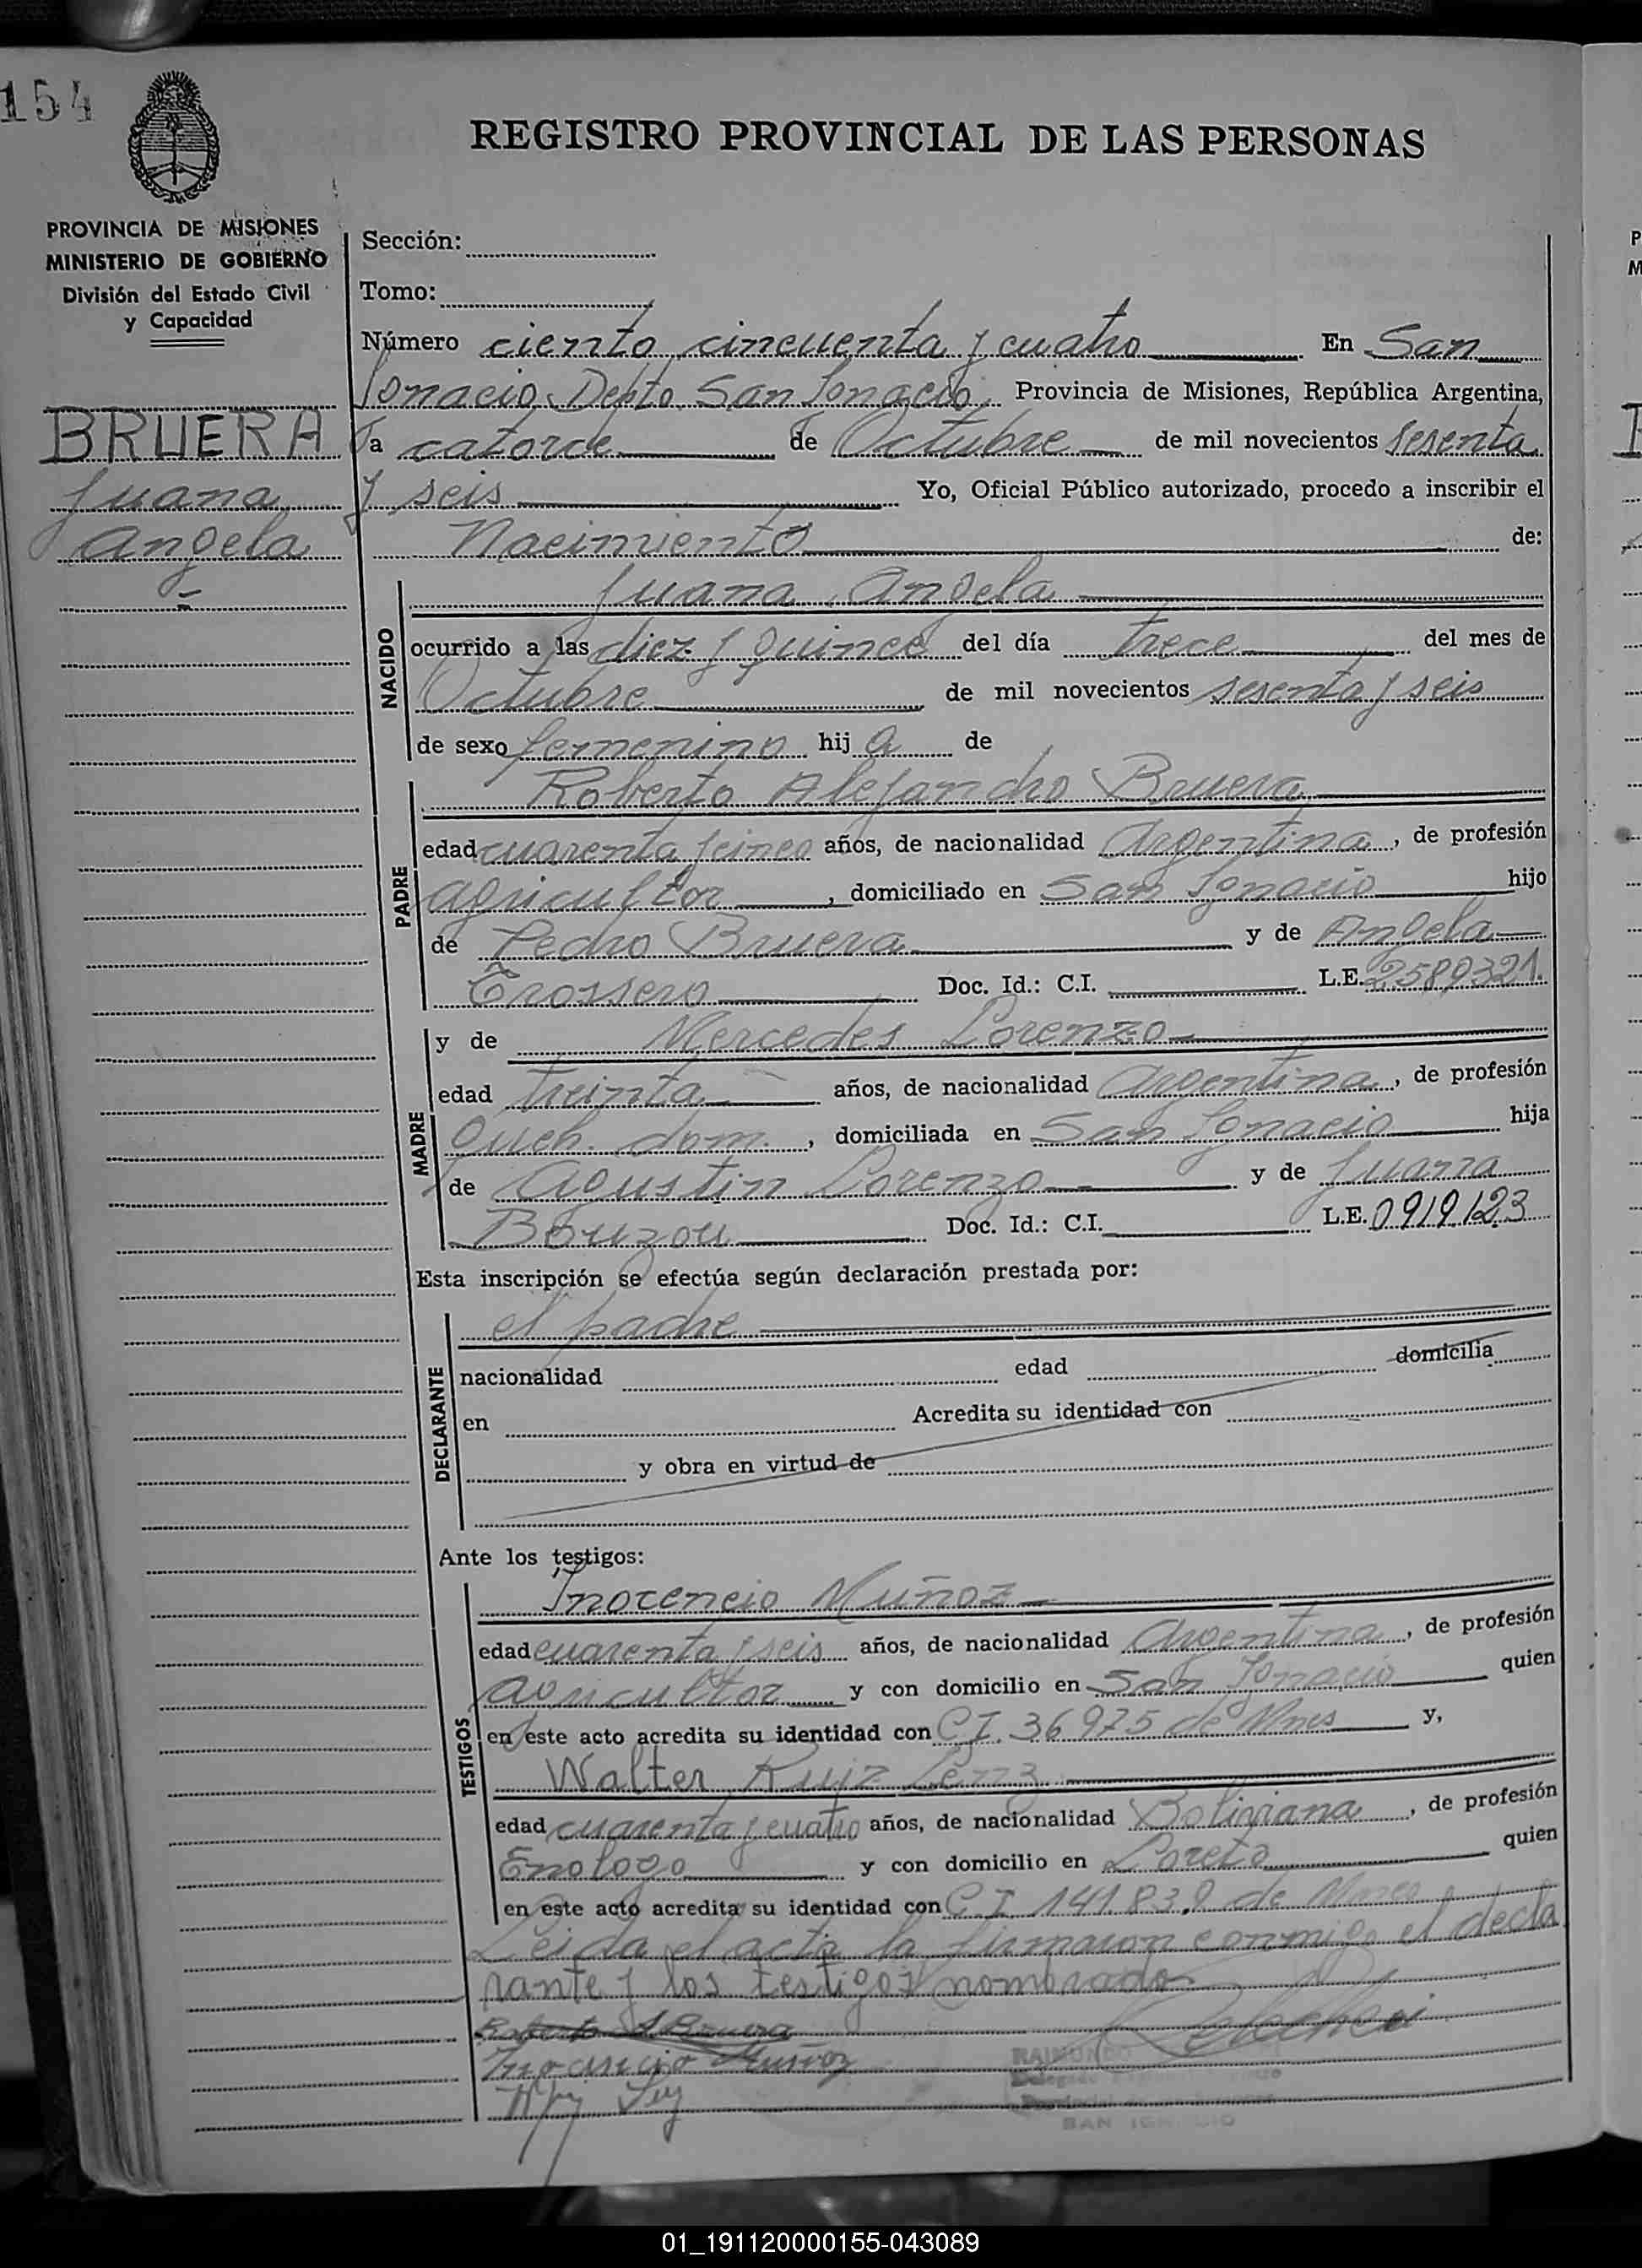 154
REGISTRO PROVINCIAL DE LAS PERSONAS
PROVINCIA DE MISIONES
MINISTERIO DE GOBIERNO
División del Estado Civil
y Capacidad
BRUERA
Juana
Angela
Sección:
Tomo:
Número ciento cincuenta y cuatro En San
Ignacio, Depto. San Ignacio, Provincia de Misiones, República Argentina,
a catorce de Octubre de mil novecientos sesenta
y seis Yo, Oficial Público autorizado, procedo a inscribir el
Nacimiento de:
NACIDO
Juana Angela
ocurrido a las diez y quince del día trece del mes de
Octubre de mil novecientos sesenta y seis
de sexo femenino hij a de
PADRE
Roberto Alejandro Bruera
edad cuarenta y cinco años, de nacionalidad Argentina, de profesión
agricultor, domiciliado en San Ignacio hijo
de Pedro Bruera y de Angela
Trossero Doc. Id.: C.I. L.E. 2589321.
MADRE
y de Mercedes Lorenzo
edad treinta años, de nacionalidad argentina, de profesión
Queh. dom., domiciliada en San Ignacio hija
de Agustin Lorenzo y de Juana
Bouzou Doc. Id.: C.I. L.E. 0919123
Esta inscripción se efectúa según declaración prestada por:
DECLARANTE
el padre
nacionalidad edad domicilia
en Acredita su identidad con
y obra en virtud de
Ante los testigos:
TESTIGOS
Inocencio Muñoz
edad cuarenta y seis años, de nacionalidad Argentina, de profesión
agricultor y con domicilio en San Ignacio quien
en este acto acredita su identidad con CI. 36975 de Mnes y,
Walter Ruiz
edad cuarenta y cuatro años, de nacionalidad Boliviana, de profesión
Enologo y con domicilio en Loreto quien
en este acto acredita su identidad con C I 141.83 de
Leida el acta la firmaron conmigo el decla
rante y los testigos nombrados
Roberto A Bruera
Inocencio Muñoz
RAIMUNDO
SAN IGNACIO
01_191120000155-043089